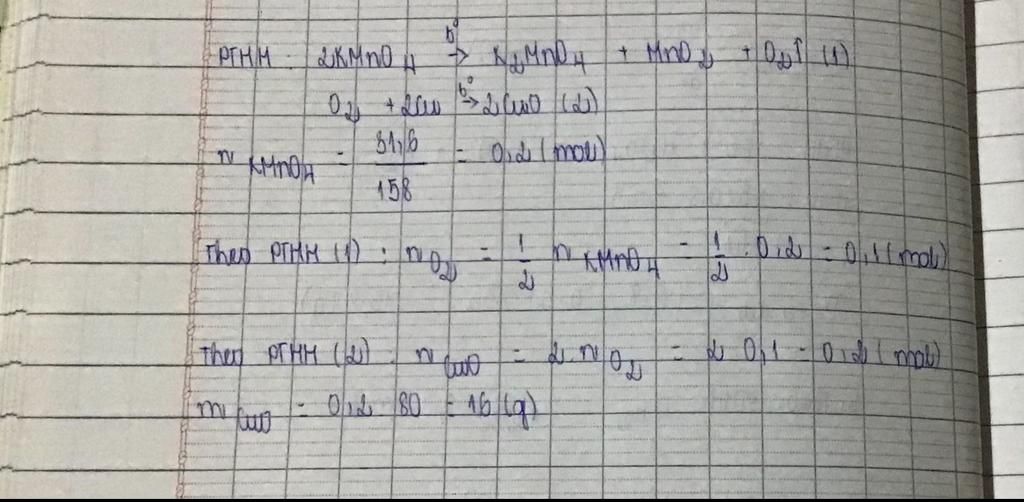 PTHH: 2KMnO₄ →(t°) K₂MnO₄ + MnO₂ + O₂↑ (1)
O₂ + 2Cu →(t°) 2CuO (2)
n KMnO₄ = 31,6/158 = 0,2 (mol)
Theo PTHH (1): n O₂ = 1/2 n KMnO₄ = 1/2 . 0,2 = 0,1 (mol)
Theo PTHH (2): n CuO = 2 n O₂ = 2 0,1 = 0,2 (mol)
m CuO = 0,2 80 = 16 (g)